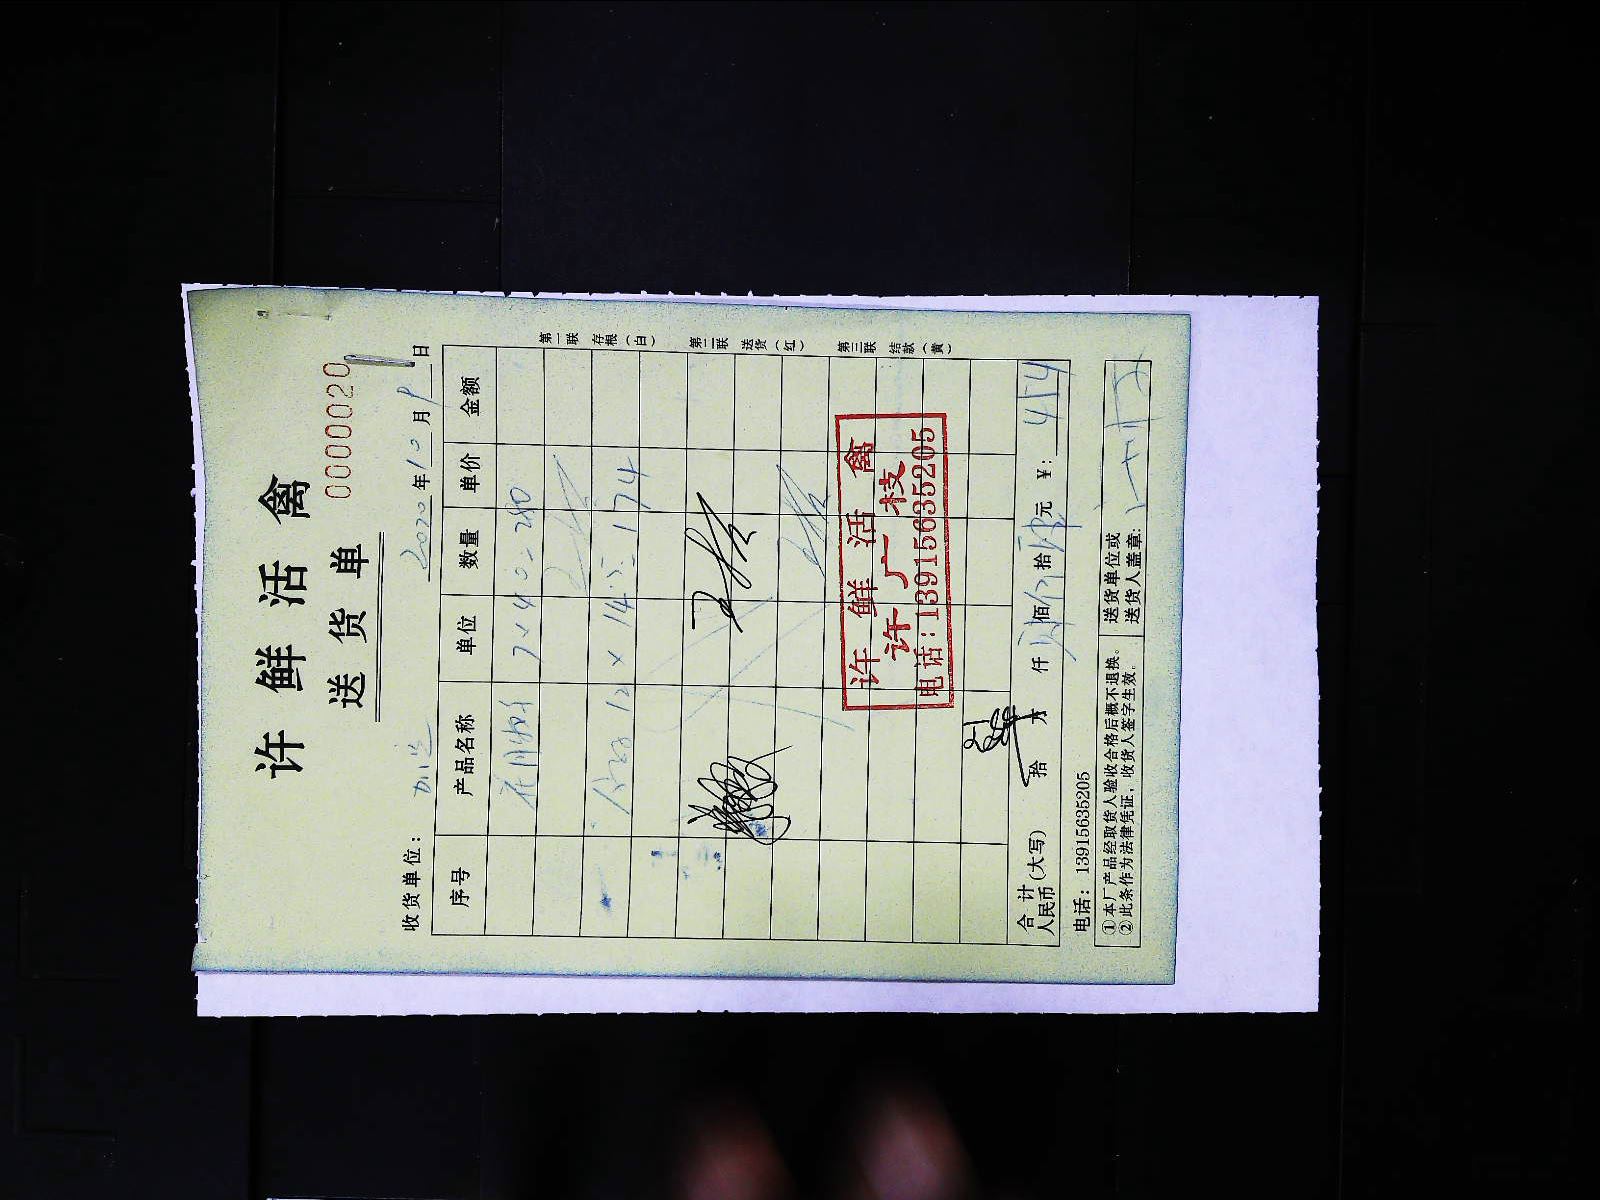 许鲜活禽
送货单
0000020
收货单位：
2020年10月9日
序号 产品名称 单位 数量 单价 金额
7×40=280
12×14.5=174
第一联 存根（白）
第二联 送货（红）
第三联 结款（黄）
许鲜活禽
许广枝
电话：13915635205
合计 人民币（大写） 拾 万 仟 佰 拾 元 ¥：454
电话：13915635205
①本厂产品经取货人验收合格后概不退换。
②此条作为法律凭证，收货人签字生效。
送货单位或
送货人盖章：